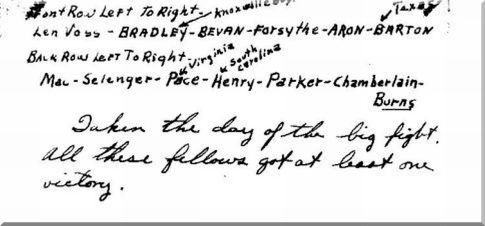 Front Row Left To Right - Knoxville boy
Texas
Len Voss - BRADLEY - BEVAN - Forsythe - ARON - BARTON
BACK ROW LEFT TO Right
Virginia
South Carolina
Mac - Selenger - Pace - Henry - Parker - Chamberlain -
Burns
Taken the day of the big fight.
All these fellows got at least one
victory.